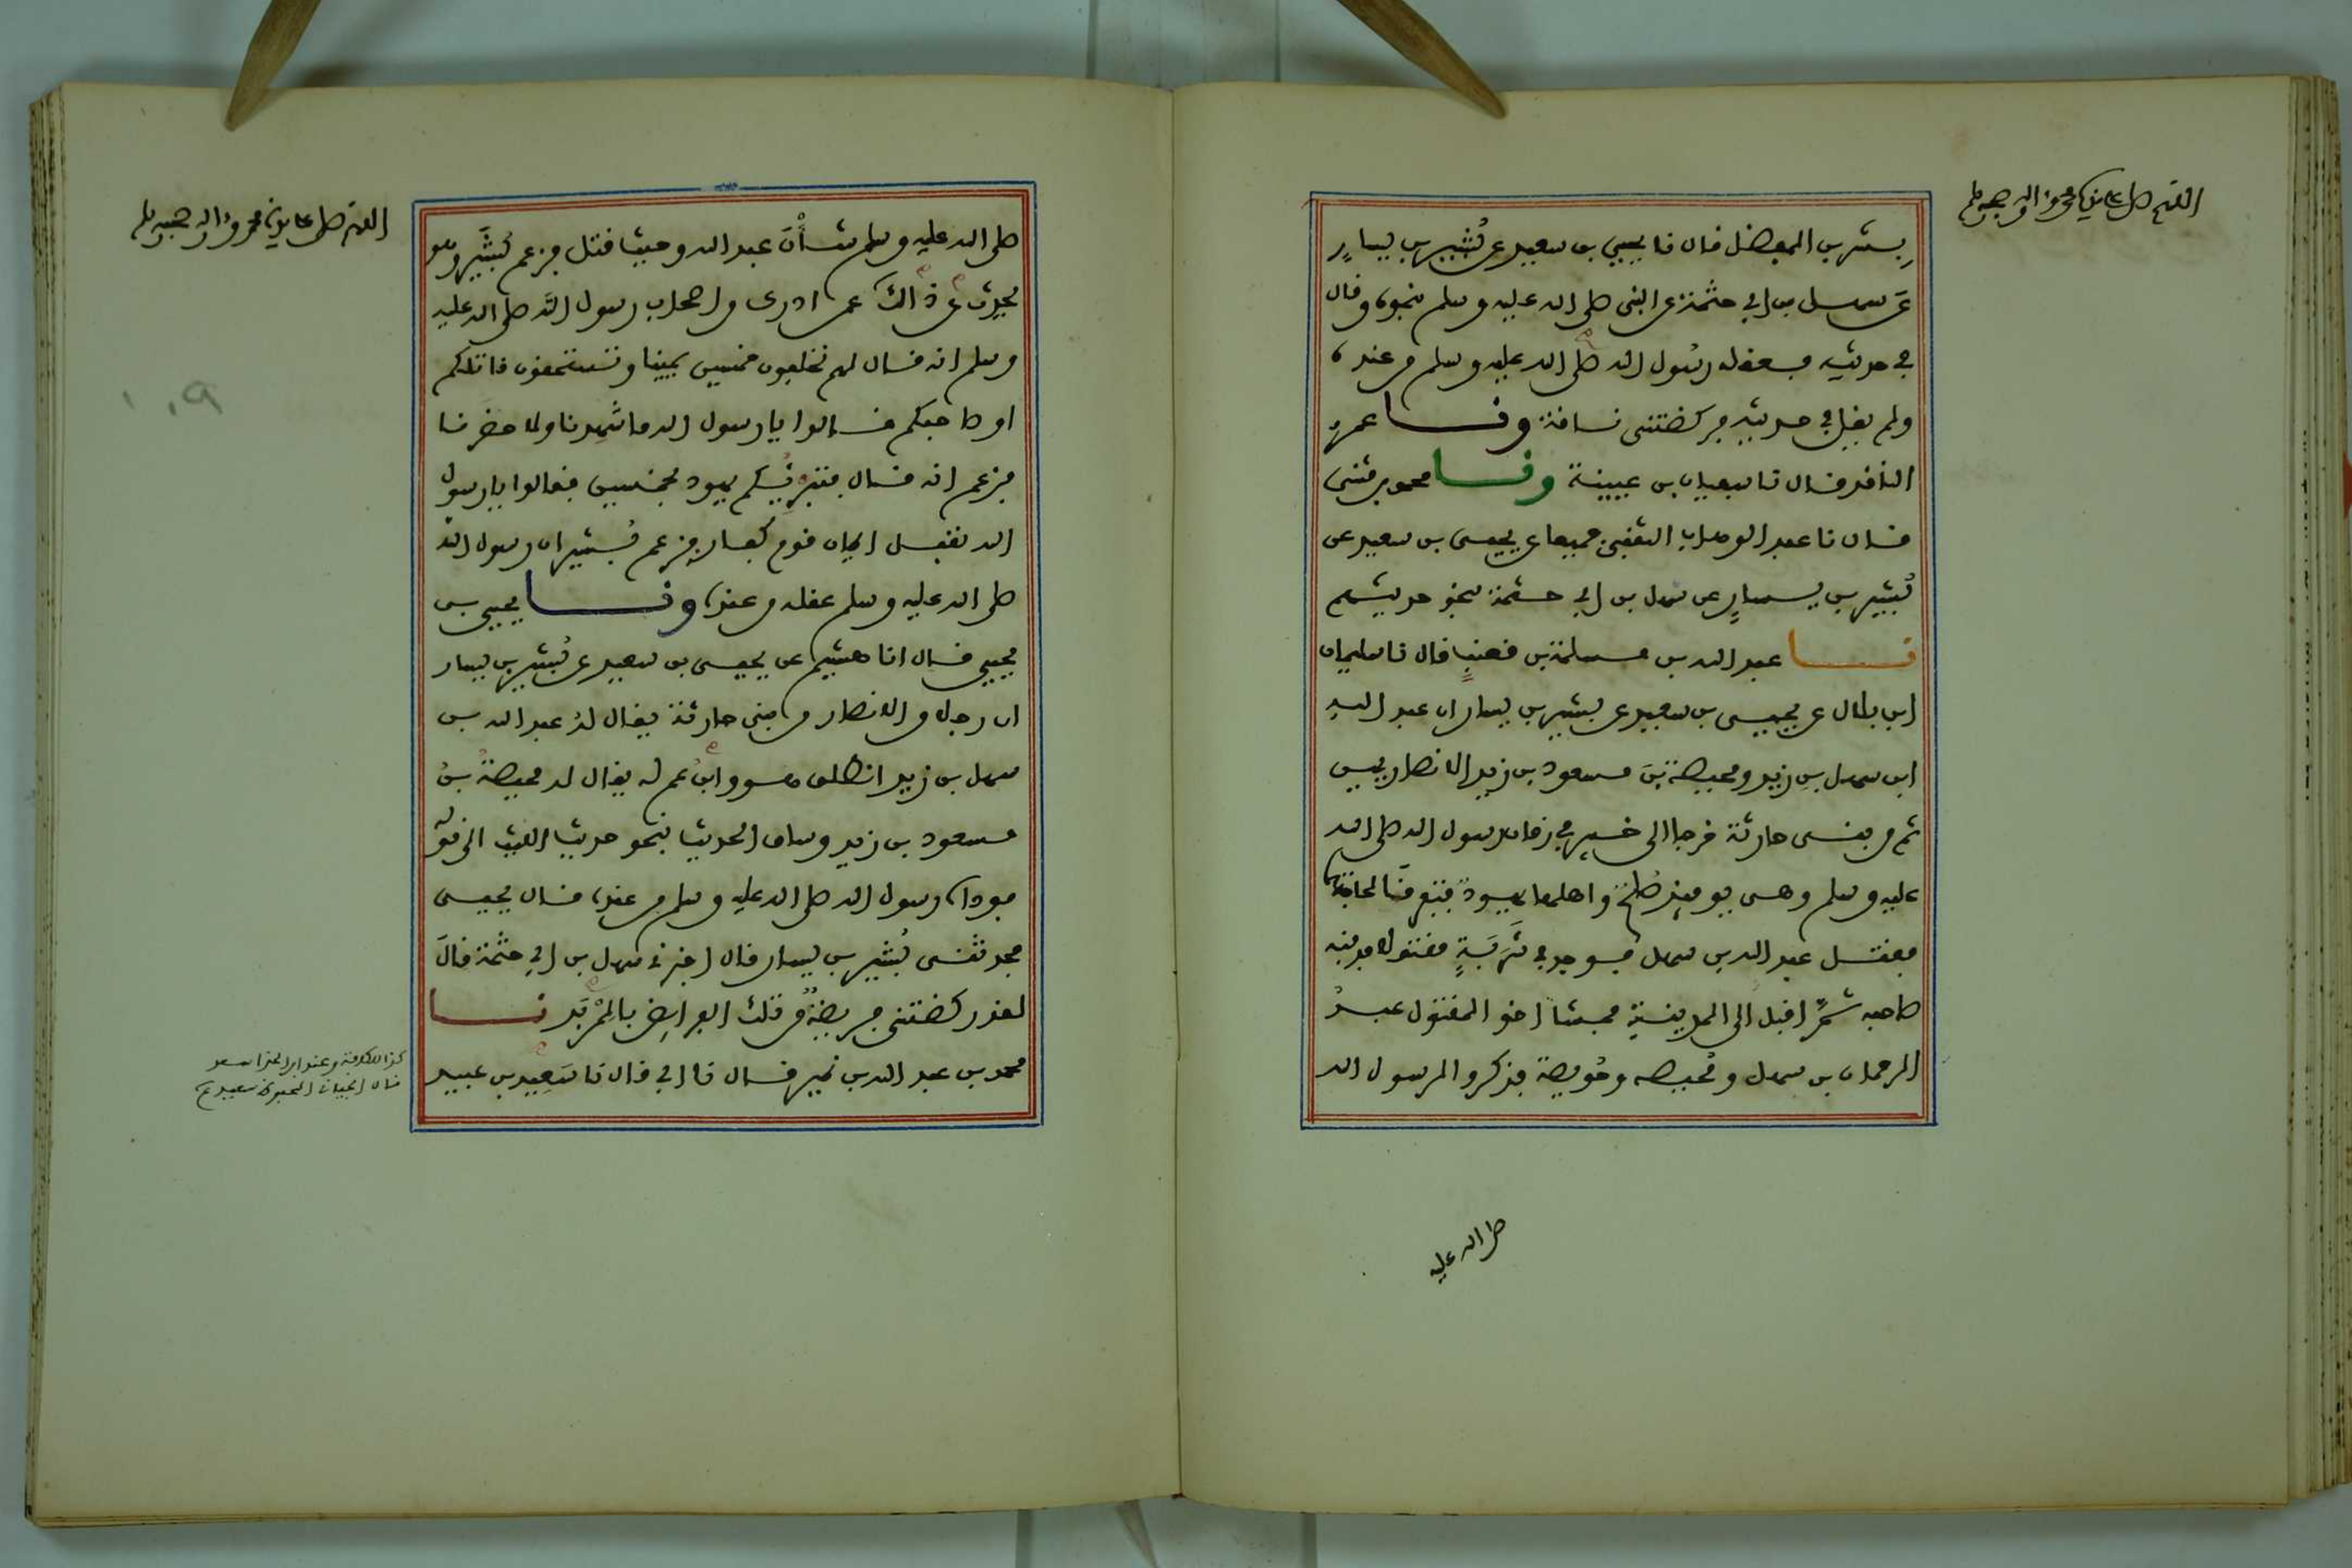 اللهم صل على سيدنا محمد وءاله وصحبه وسلم
بشر بن المفضل قال نا يحيى بن سعيد عن بُشير بن يسارٍ
عن سهل بن ابي حثمة عن النبي صلى الله عليه وسلم نحوه وقال
في حديثه فعقله رسول الله صلى الله عليه وسلم من عنده
ولم يقل في حديثه فركضتني ناقة ونا عمرو
الناقد قال نا سفيان بن عيينة ونا محمد بن مثنى
قال نا عبد الوهاب الثقفي جميعا عن يحيى بن سعيد عن
بُشير بن يسارٍ عن سهل بن ابي حثمة بنحو حديثهم
نا عبد الله بن مسلمة بن قعنبٍ قال نا سليمان
ابن بلال عن يحيى بن سعيد عن بشير بن يسار ان عبد الله
ابن سهل بن زيد ومحيصة بن مسعود بن زيد الانصاريين
ثم من بني حارثة خرجا الى خيبر في زمان رسول الله صلى الله
عليه وسلم وهي يومئذ صُلحٌ واهلها يهودٌ فتفرقا لحاجتهما
فقتل عبد الله بن سهل فوجد في شَرَبَةٍ مقتولا فدفنه
صاحبه ثمَّ اقبل الى المدينة فمشا اخو المقتول عبدُ
الرحمان بن سهل ومُحيصه وحُويصة فذكروا لرسول الله
صلى الله عليه
اللهم صل على سيدنا محمد وءاله وصحبه وسلم
صلى الله عليه وسلم شأنَ عبد الله وحيث قتل فزعم بُشَيْر وهو
يحدث عن ذالك عمن ادرك من اصحاب رسول الله صلى الله عليه
وسلم انه قال لهم تحلفون خمسين يمينا وتستحقون قاتلكم
او صاحبكم قالوا يا رسول الله ما شهدنا ولا حضرنا
فزعم انه قال فتبرئكم يهود بخمسين فقالوا يا رسول
الله نقبل ايمان قوم كفار فزعم بُشير ان رسول الله
صلى الله عليه وسلم عقله من عنده ونا يحيى بن
يحيى قال انا هشيم عن يحيى بن سعيد عن بُشير بن يسار
ان رجلا من الانصار من بني حارثة يقال له عبد الله بن
سهل بن زيد انطلق هو وابنُ عم له يقال له محيصةُ بنُ
مسعود بن زيد وساق الحديث بنحو حديث الليث الى قوله
فوداه رسول الله صلى الله عليه وسلم من عنده قال يحيى
فحدثني بُشير بن يسار قال اخبرني سهل بن ابي حثمة قالَ
لقد ركضتني فريضةٌ من تلك الفرائض بالمِرْبَد نا
محمد بن عبد الله بن نمير قال نا ابي قال نا سَعِيد بن عبيد